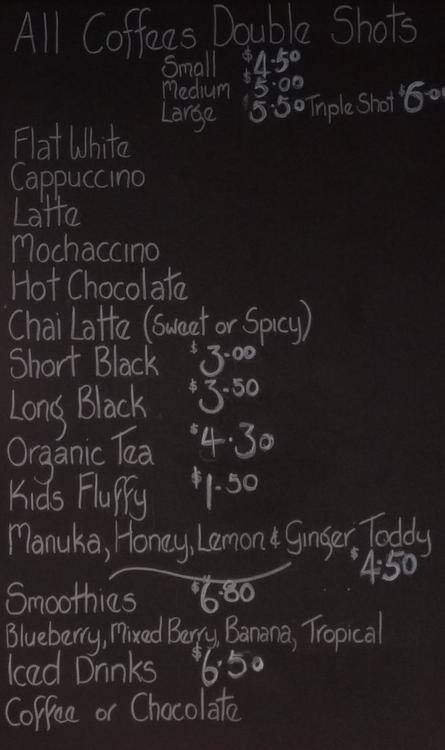 All Coffees Double Shots
Small $4.50
Medium $5.00
Large 5.50 Triple Shot $6.00
Flat White
Cappuccino
Latte
Mochaccino
Hot Chocolate
Chai Latte (Sweet or Spicy)
Short Black $3.00
Long Black $3.50
Organic Tea $4.30
Kids Fluffy $1.50
Manuka, Honey, Lemon & Ginger Toddy
$4.50
Smoothies $6.80
Blueberry, Mixed Berry, Banana, Tropical
Iced Drinks $6.50
Coffee or Chocolate